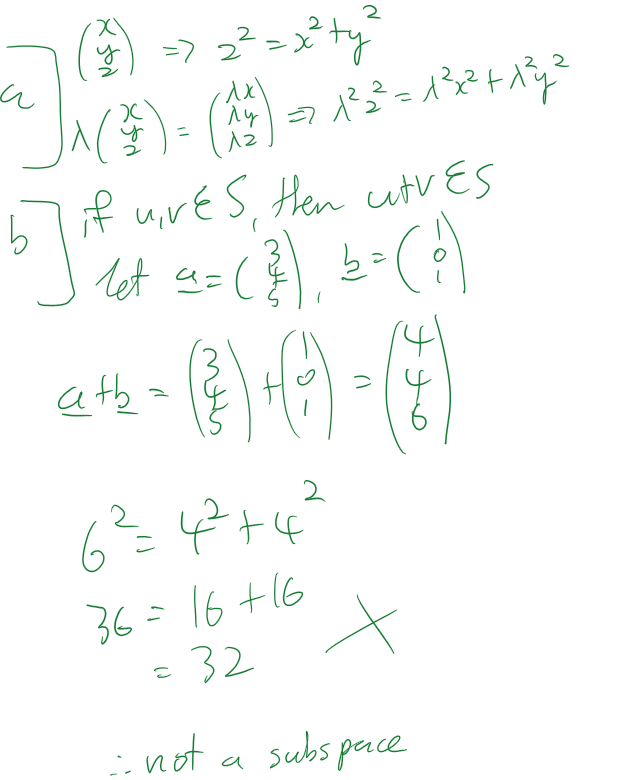 a] (x y z) => z² = x² + y²
λ(x y z) = (λx λy λz) => λ²z² = λ²x² + λ²y²
b] if u,v ∈ S, then u+v ∈ S
let a = (3 4 5), b = (1 0 1)
a+b = (3 4 5) + (1 0 1) = (4 4 6)
6² = 4² + 4²
36 = 16 + 16
= 32 ×
∴ not a subspace